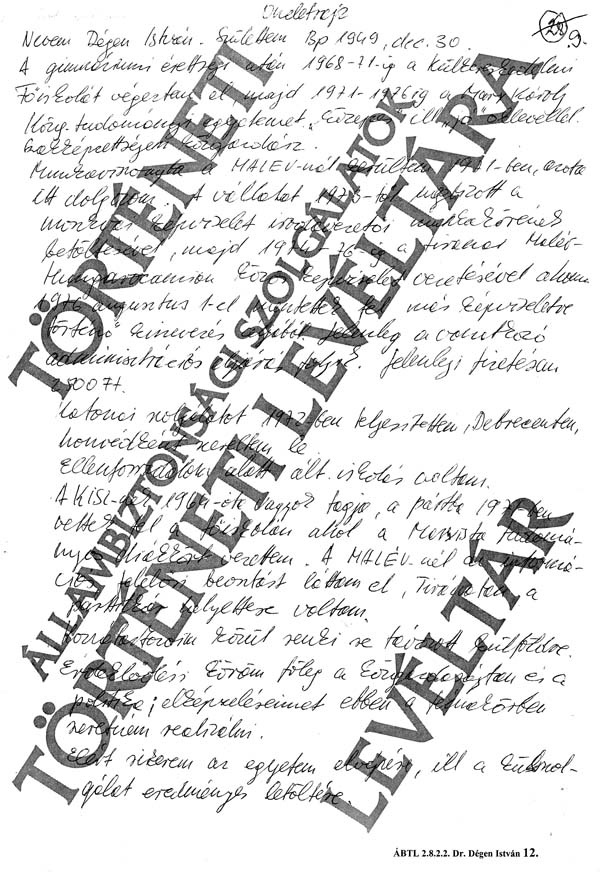 Önéletrajz
29.
Nevem Dégen István. Születtem Bp 1949, dec. 30.
A gimnáziumi érettségi után 1968-71-ig a Külkereskedelmi
Főiskolát végeztem el majd 1971-1976ig a Marx Károly
Közg. tudományi egyetemet „közepes" ill „jó" oklevéllel.
Szakképzettségem közgazdász.
Munkaviszonyba a MALÉV-nál kerültem 1971-ben, azóta
itt dolgozom. A vállalat 1973-tól megbízott a
moszkvai képviselet irodavezetői munkakörének
betöltésével, majd 1974-76 ig a tiranai Malév-
Hungarocamion közös képviselet vezetésével
1976 augusztus 1-el más képviseletre
történő kinevezés Jelenleg a vonatkozó
adminisztrációs eljárás folyik. Jelenlegi fizetésem
2800 Ft.
Katonai szolgálatot 1972-ben teljesítettem, Debrecenben,
honvédként szereltem le
Ellenforradalom alatt ált. iskolás voltam.
A KISZ-nek 1964-óta vagyok tagja, a pártba
vettek fel a főiskolán ahol a Marxista tudomá-
nyos diákkört vezettem. A MALÉV-nál
beosztást láttam el, Tiranában a
párttitkár helyettese voltam.
közül senki se távozott külföldre.
Érdeklődési köröm főleg a közgazdaságtan és a
politika; elképzeléseimet ebben a témakörben
szeretném realizálni.
Elért sikerem az egyetem elvégzése, ill a külszol-
gálat eredményes betöltése.
TÖRTÉNETI
ÁLLAMBIZTONSÁGI SZOLGÁLATOK
TÖRTÉNETI LEVÉLTÁRA
LEVÉLTÁR
ÁBTL 2.8.2.2. Dr. Dégen István 12.